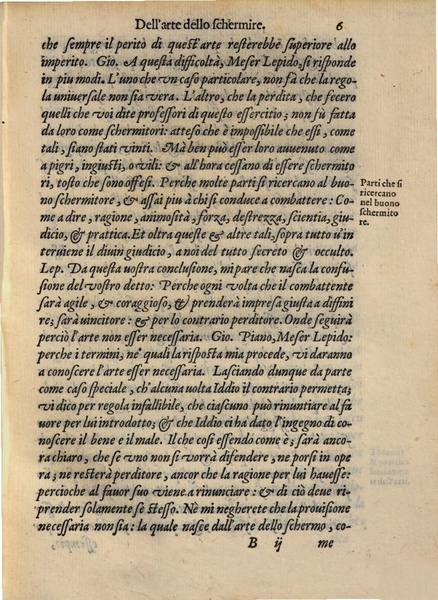 Dell'arte dello schermire. 6
che sempre il perito di quest'arte resterebbe superiore allo
imperito. Gio. A questa difficoltà, Meser Lepido, si risponde
in piu modi. L'uno che vn caso particolare, non fà che la rego
la vniuersale non sia vera. L'altro, che la perdita, che fecero
quelli che voi dite professori di questo essercitio; non fù fatta
da loro come schermitori: atteso che è impossibile che essi, come
tali, siano stati vinti. Mà ben può esser loro auuenuto come
a pigri, ingiusti, o vili: & all'hora cessano di essere schermito
ri, tosto che sono offesi. Perche molte parti si ricercano al buo-
no schermitore, & assai piu à chi si conduce a combattere: Co-
me a dire, ragione, animosità, forza, destrezza, scientia, giu-
dicio, & prattica. Et oltra queste & altre tali, sopra tutto v'in
teruiene il diuin giudicio, a noi del tutto secreto & occulto.
Lep. Da questa vostra conclusione, mi pare che nasca la confu-
sione del vostro detto: Perche ogni volta che il combattente
sarà agile, & coraggioso, & prenderà impresa giusta a diffini
re; sarà vincitore: & per lo contrario perditore. Onde seguirà
perciò l'arte non esser necessaria. Gio. Piano, Meser Lepido:
perche i termini, ne' quali la risposta mia procede, vi daranno
a conoscere l'arte esser necessaria. Lasciando dunque da parte
come caso speciale, ch'alcuna volta Iddio il contrario permetta;
vi dico per regola infallibile, che ciascuno può rinuntiare al fa
uore per lui introdotto; & che Iddio ci ha dato l'ingegno di co-
noscere il bene e il male. Il che così essendo come è; sarà anco-
ra chiaro, che se vno non si vorrà difendere, ne porsi in ope
ra; ne resterà perditore, ancor che la ragione per lui hauesse:
percioche al fauor suo viene a rinunciare: & di ciò deue ri-
prender solamente se stesso. Nè mi negherete che la prouisione
necessaria non sia: la quale nasce dall'arte dello schermo, co-
B ij me
Parti che si
ricercano
nel buono
schermito
re.